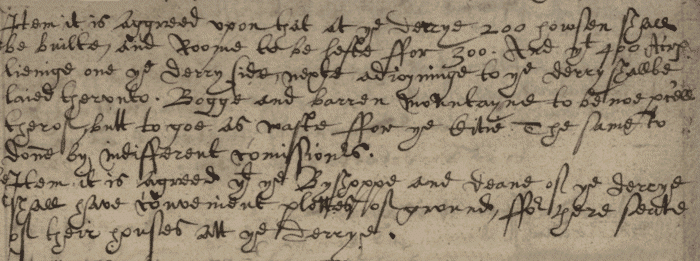 Item it is aggreed upon that at ye derrye 200 howsen shall
be builte, and Roome to be lefte ffor 300. And yt 4000 Acres
lienige one ye derry side, nexte adioyninge to ye derry shalbe
laied therunto. Bogge and barren mountayne to be noe p'cell
therof, butt to goe as waste ffor ye Citie. The same to
done by indifferent comissionrs.
Item it is agreed yt ye Byshoppe and deane of ye derrye
shall have convenient plottes of ground, ffor there seate
of their houses att ye derrye.